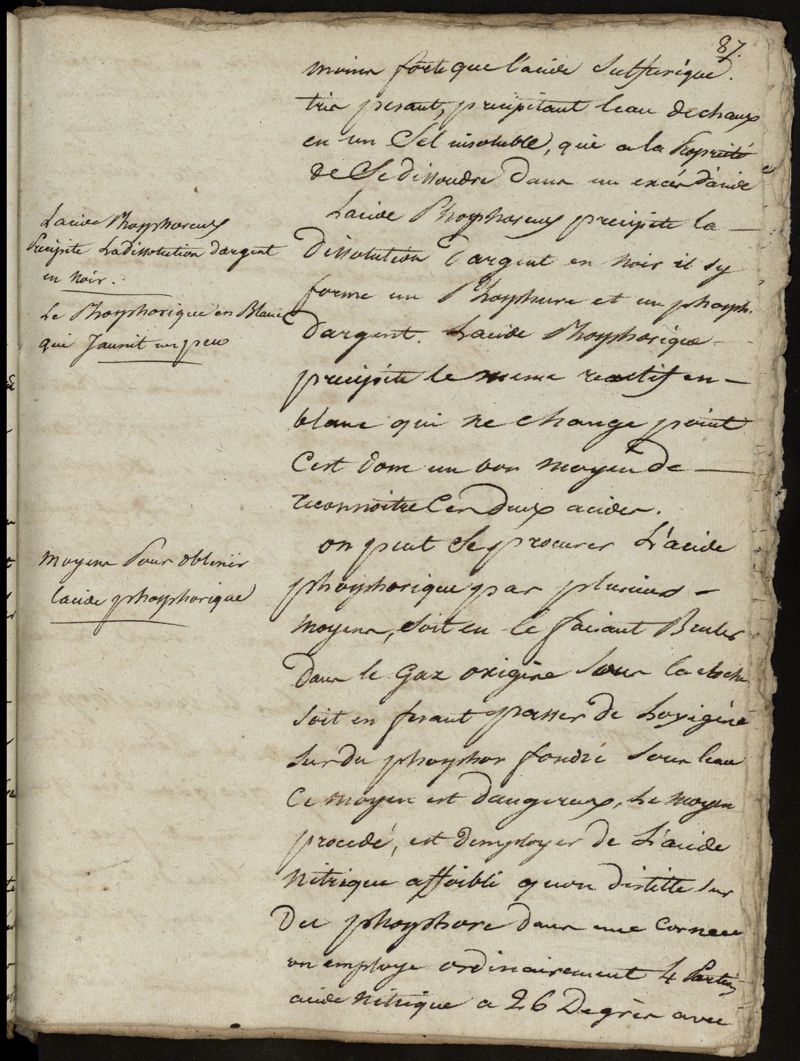 87.
moins forte que l'acide Sulfurique.
tres pesant, precipitant leau de chaux
en un Sel insoluble, que a la Propriété
de Se dissoudre dans un excès d'acide
Lacide Phosphoreux precipite la
dissolution d'argent en noir il s'y
forme un Phosphure et un phosph.
dargent. Lacide Phosphorique
precipite le meme reactif en
blanc qui ne change point
C'est donc un bon moyen de
reconnoitre Ces deux acides.
on peut Se procurer L'acide
phosphorique par plusieurs
moyens, Soit en le faisant Bruler
Dans le Gaz oxigène Sous la cloche
soit en fesant passer de Loxigène
Sur du phosphor fondu Sous leau
Ce moyen est dangereux, Le moyen
procedé, est demployer de L'acide
Nitrique affoibli quon distille sur
Du phosphore dans une Cornue
on employe ordinairement 4 Parties
acide Nitrique a 26 Degrès avec
Lacide Phosphoreux
Precipite La dissolution dargent
en Noir.
Le Phosphorique en Blanc
que Jaunit un peu
moyens Pour obtenir
lacide phosphorique